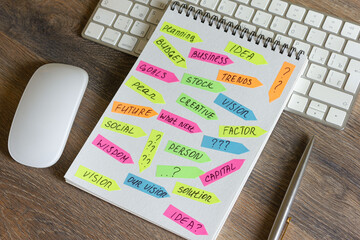 Planning
BUDGET
BUSINESS
IDEA
?
?
GOALS
STOCK
TRENDS
PLAN
CREATIVE
VISION
FUTURE
WHAT NEXT
FACTOR
SOCIAL
?
?
?
???
WISDOM
PERSON
..?
CAPITAL
VISION
OUR VISION
SOLUTION
IDEA?